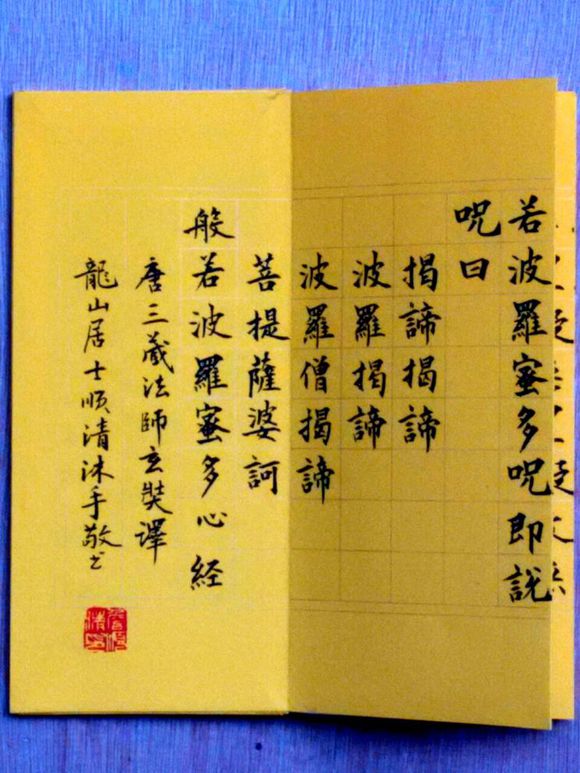 若波羅蜜多呪即說
呪曰
揭諦揭諦
波羅揭諦
波羅僧揭諦
菩提薩婆訶
般若波羅蜜多心経
唐三藏法師玄奘譯
龍山居士順清沐手敬书